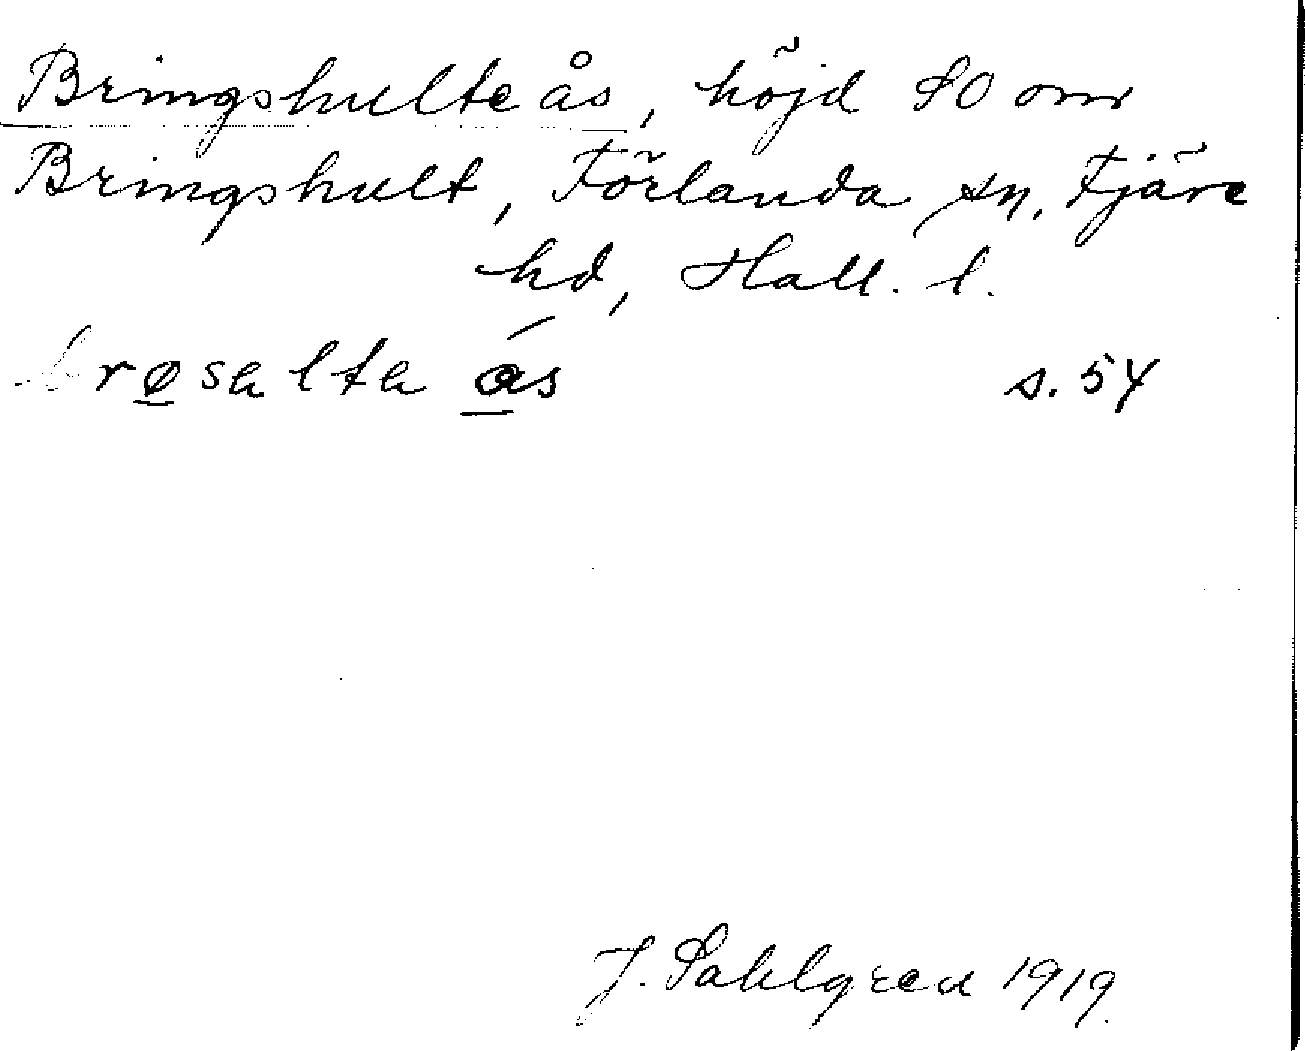 Bringshulte ås, höjd SO om
Bringshult, Förlanda sn, Fjäre
hd, Hall. l.
brøsalta ås s. 54
J. Sahlgren 1919.